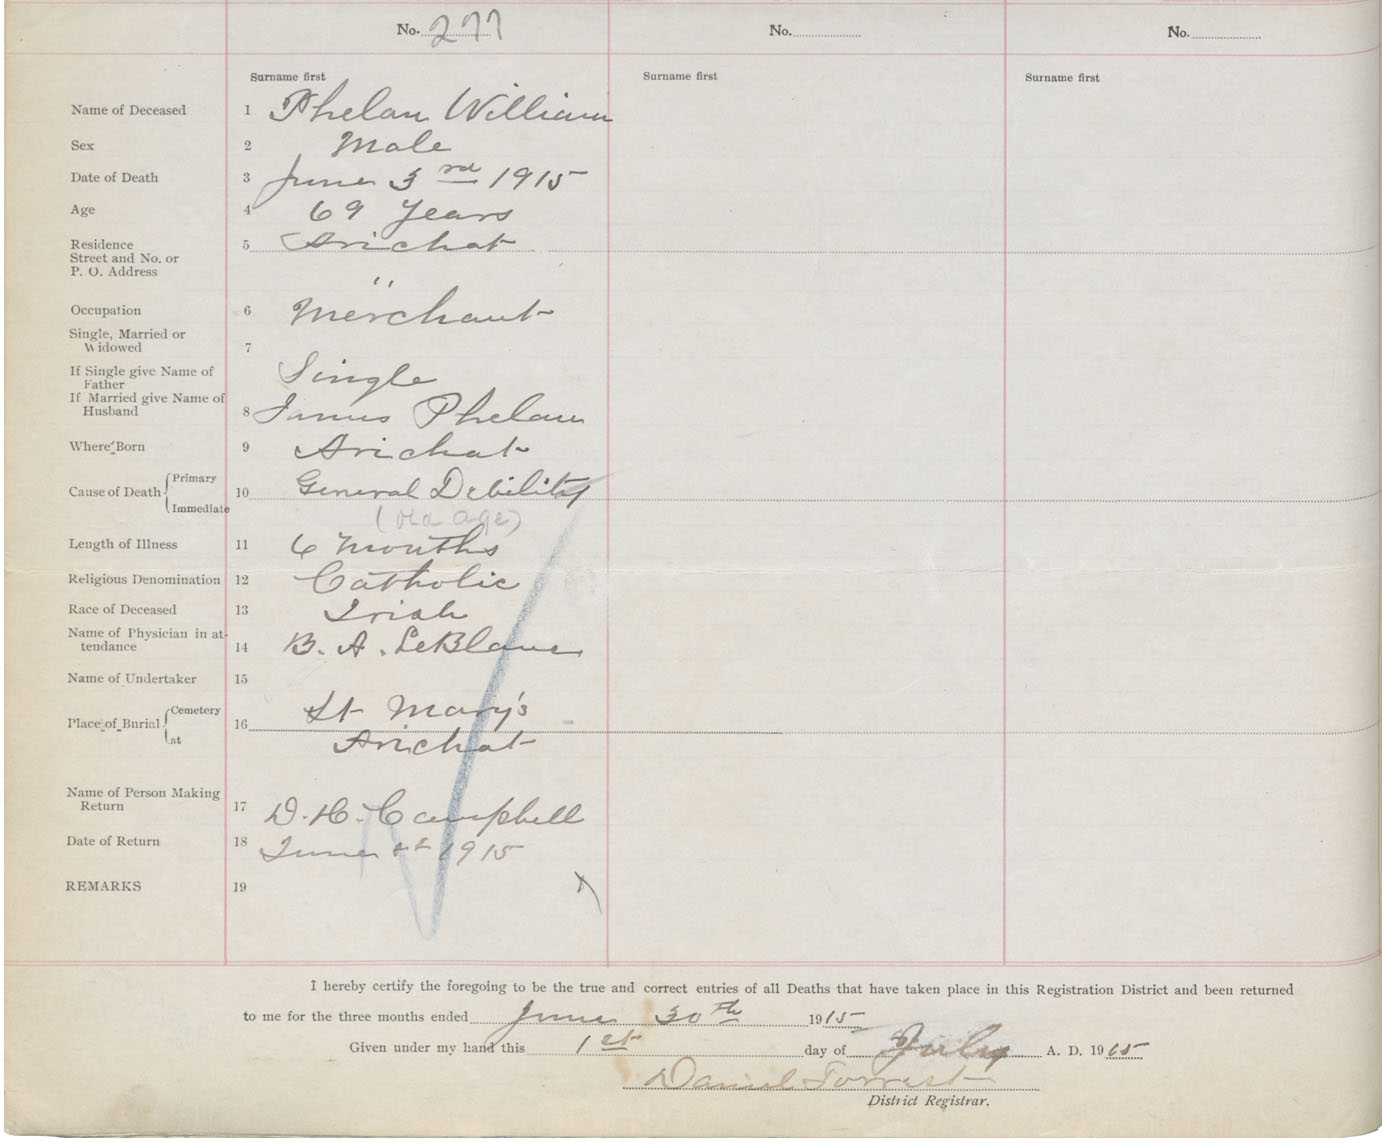 No. 277 No. No.
Surname first Surname first Surname first
Name of Deceased 1 Phelan William
Sex 2 Male
Date of Death 3 June 3rd 1915
Age 4 69 Years
Residence 5 Arichat
Street and No. or
P. O. Address "
Occupation 6 Merchant
Single, Married or
Widowed 7
Single
If Single give Name of
Father
If Married give Name of
Husband 8 James Phelan
Where Born 9 Arichat
Cause of Death Primary
10 General Debility
Immediate (old age)
Length of Illness 11 6 months
Religious Denomination 12 Catholic
Race of Deceased 13 Irish
Name of Physician in at-
tendance 14 B. A. LeBlanc
Name of Undertaker 15
Place of Burial Cemetery 16 St Mary's
at Arichat
Name of Person Making
Return 17 D. H. Campbell
Date of Return 18 June 1915
REMARKS 19
I hereby certify the foregoing to be the true and correct entries of all Deaths that have taken place in this Registration District and been returned
to me for the three months ended June 30th 1915
Given under my hand this 1st day of July A. D. 1915
Daniel Forrest
District Registrar.